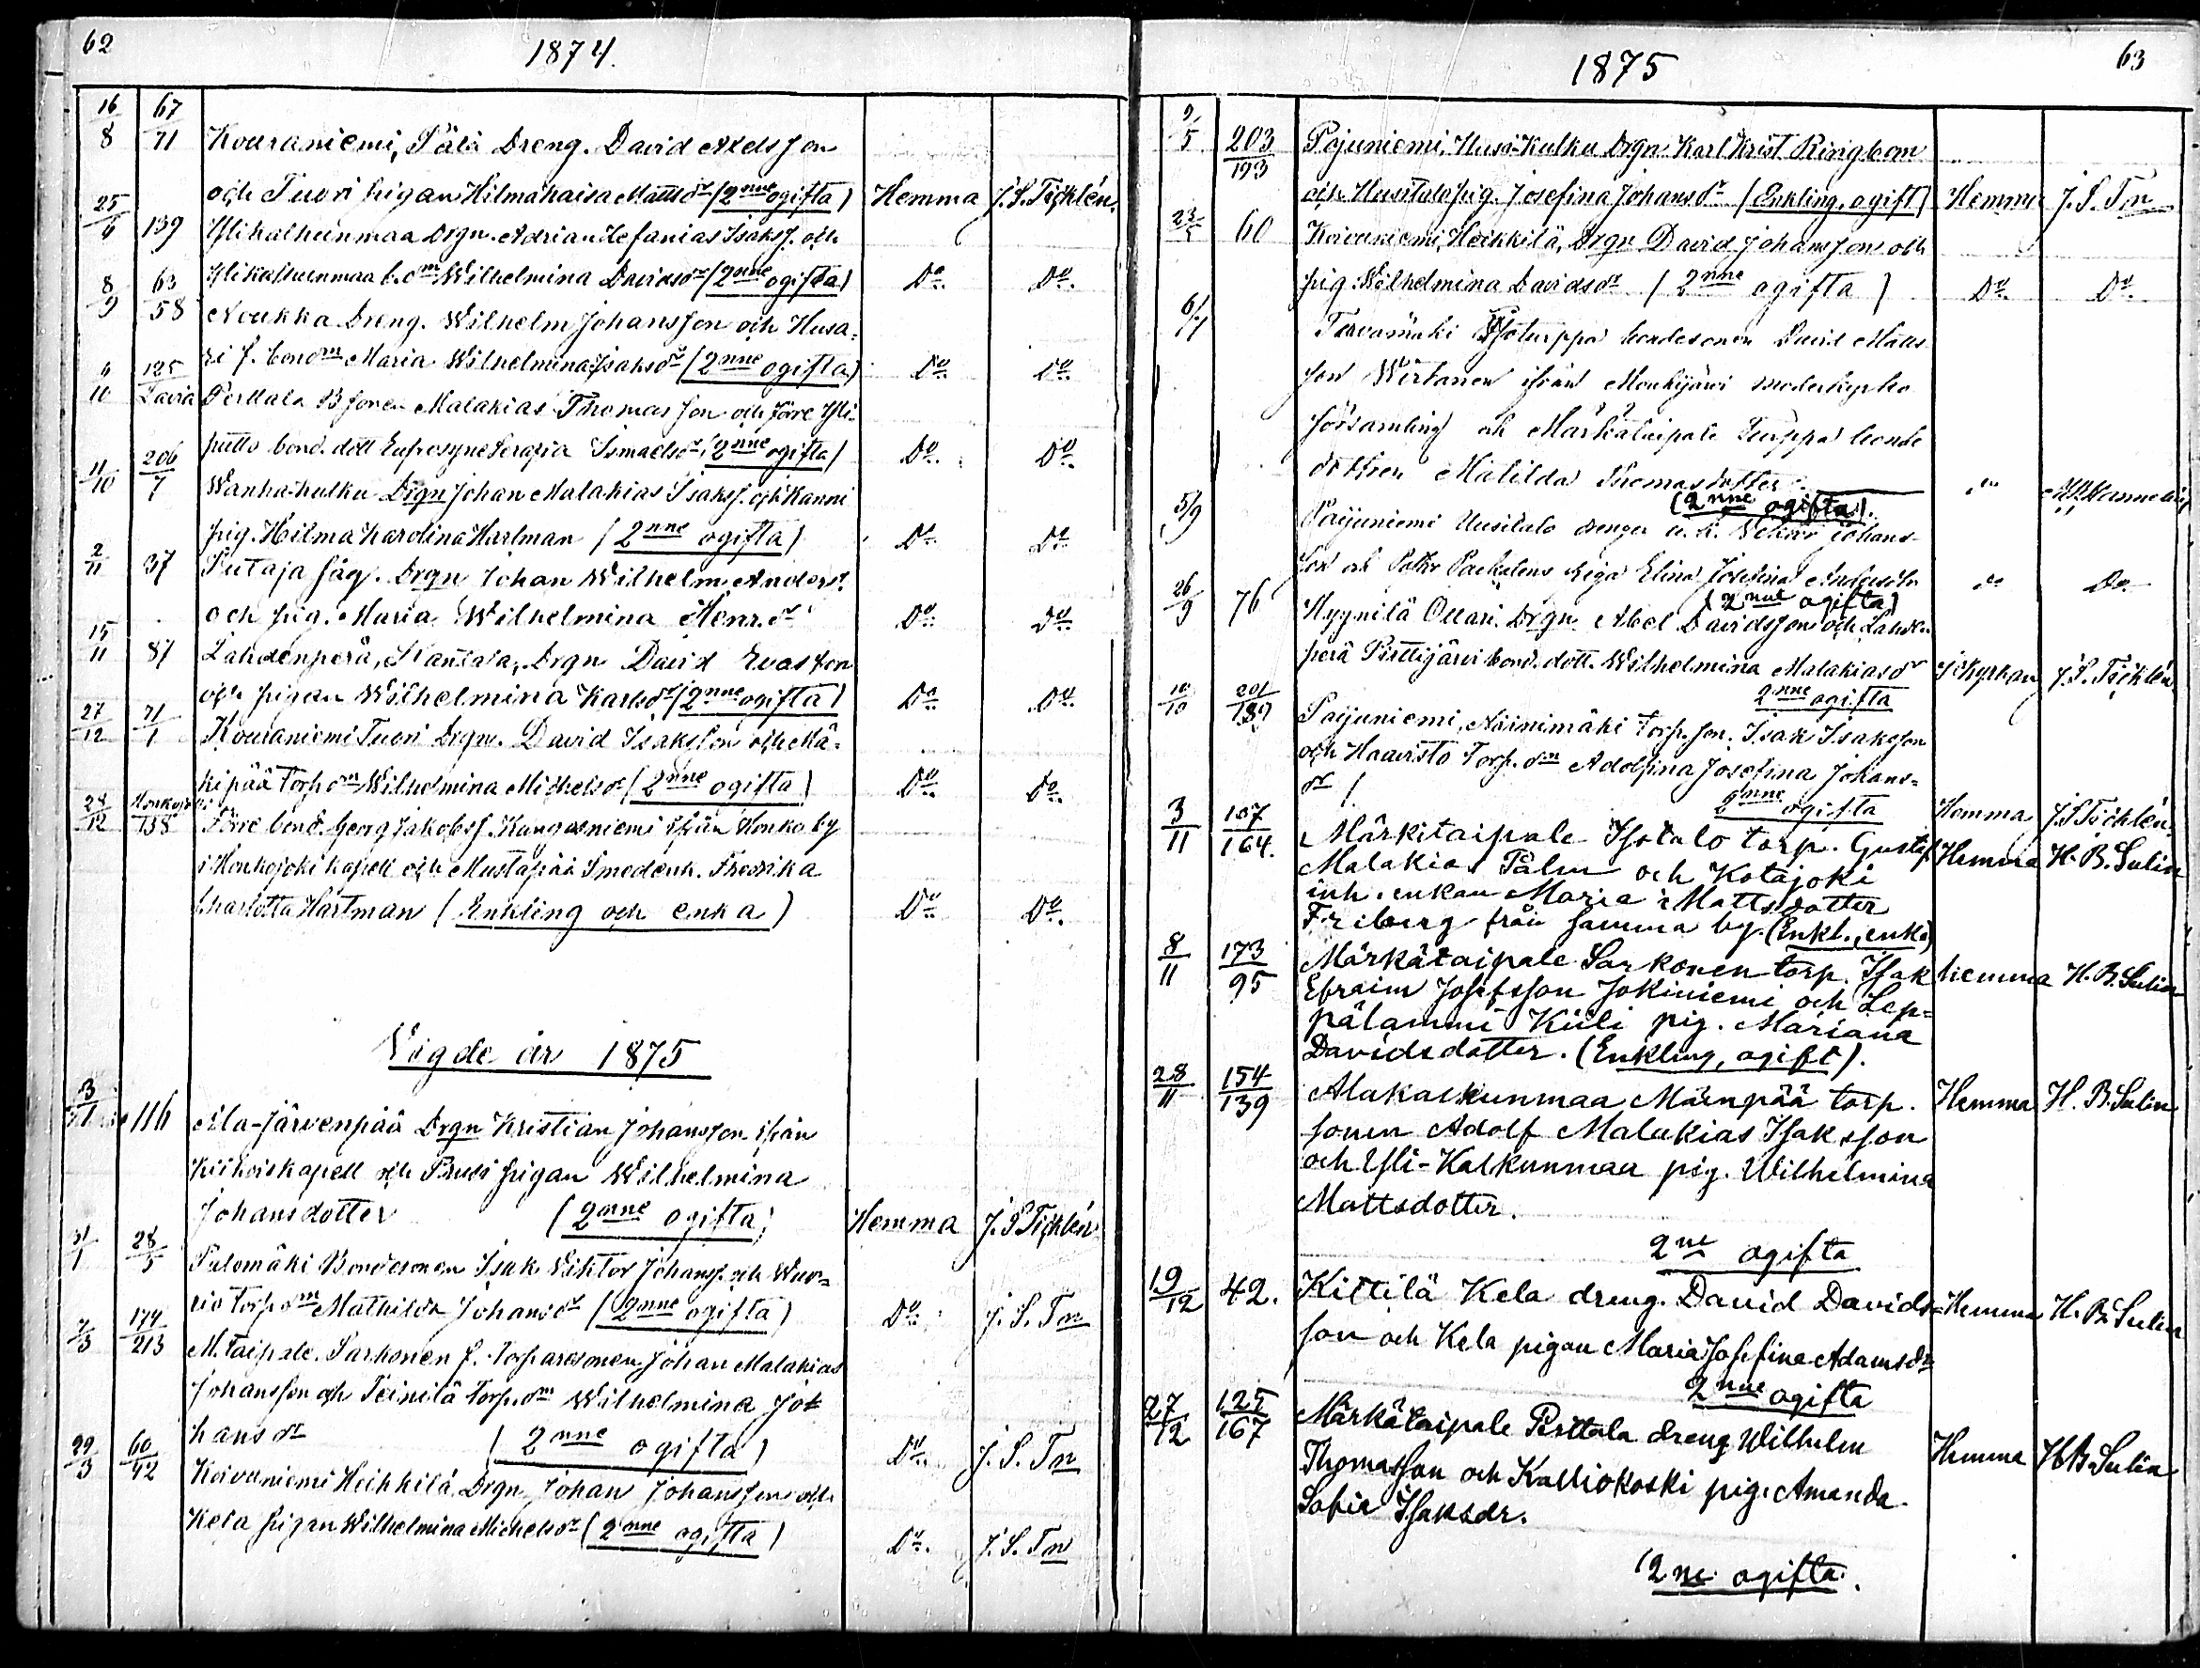 62
1874.
16/8 67/71 Kouraniemi, Päli Dreng. David Axelsson
och Tuori pigan Hilma Kaisa Mattsdr (2nne ogifta) Hemma J. S. Tichlén.
25/6 139 Ylikalkunmaa Drgn. Adrian Zefanias Isakss. och
Ylikalkunmaa b.dm Wilhelmina Davidsdr (2nne ogifta) Do. Do.
8/9 63/58 Noukka Dreng. Wilhelm Johansson och Husa-
ri f. bondm Maria Wilhelmina Isaksdr (2nne ogifta) Do. Do.
4/10 125/Lavia Perttala B sonen Malakias Thomasson och Törre Yli-
putto bond. dott Eufrosyne Serafia Ismaelsdr (2nne ogifta) Do. Do.
11/10 206/7 Wanha-kulku Drgn Johan Malakias Isakss. och Kanni
pig. Hilma Karolina Hartman (2nne ogifta) Do. Do.
2/11 37 Sutaja såg. Drgn Johan Wilhelm Anderss.
och pig. Maria Wilhelmina Henr.dr Do. Do.
15/11 87 Lahdenperä, Drgn David Evasson
och pigan Wilhelmina Karlsdr (2nne ogifta) Do. Do.
27/12 71/1 Kouraniemi Tuori Drgn. David Isaksson och Mä-
kipää Torp dm Wilhelmina Michelsdr (2nne ogifta) Do. Do.
28/12 138 Törre bond. Georg Jakobss. Kangasniemi ifrån Honko by
i Honkajoki kapell och Mustapää Smedenk. Fredrika
Charlotta Hartman (Enkling och enka) Do. Do.
Vigde år 1875
3/1 116 Ala-Järvenpää Drgn Kristian Johansson ifrån
Kiikois kapell och Pusi pigan Wilhelmina
Johansdotter (2nne ogifta) Hemma J. S. Tichlén
31/1 28/5 Palomäki Bondesonen Isak Wiktor Johanss. och Wuo-
rio torp dm Mathilda Johansdr (2nne ogifta) Do. J. S. Tn
7/3 177/213 M.taipale. Sarkonen f. Torparesonen Johan Malakias
Johansson och Teinilä Torp.dm Wilhelmina Jo-
hansdr (2nne ogifta) Do. J. S. Tn
29/3 60/42 Koivuniemi Heikkilä Drgn Johan Johansson och
Kela pigan Wilhelmina Michelsdr (2nne ogifta) Do. J. S. Tn
1875
63
9/5 203/193 Pajuniemi, Husi-Kulku Drgn Karl Krist Ringbom
och Uusitalo pig. Josefina Johansdr (Enkling, ogift) Hemma J. S. Tn
60 Koivuniemi, Heikkilä, Drgn David Johansson och
pig Wilhelmina Davidsdr (2nne ogifta) Do. Do.
6/ Tarvamäki Isoturppa bondesonen David Matts
son Wirtanen ifrån Mouhijärvi moderkyrko
församling och Märkätaipale Turppa bonde
dottren Matilda Thomasdotter
(2nne ogifta).
5/9 Pajuniemi Uusitalo drengen Johans-
son och piga Elina Josefina Andersdr Do.
(2nne ogifta)
26/9 76 Hyynilä Ollari Drgn Abel Davidsson och Lahden
perä Pirttijärvi bond. dott. Wilhelmina Malakiasdr i Kyrkan J. S. Tichlén
2nne ogifta
10/10 201/189 Pajuniemi, Niinimäki Torp.son. Isak Isaksson
och Haavisto Torp.dm Adolfina Josefina Johans-
dr 2nne ogifta Hemma J. S. Tichlén.
3/11 107/164. Märkitaipale Isotalo torp. Gustaf Hemma H. B. Sulin
Malakias Palm och Kotajoki
inh. enkan Maria Mattsdotter
Friberg från samma by. (Enkl., enka)
8/11 173/95 Märkätaipale Sarkonen torp. Isak hemma H. B. Sulin
Efraim Josefsson Jokiniemi och Lep-
pälammi Kiili pig. Mariana
Davidsdotter. (Enkling, ogift).
28/11 154/139 Alakalkunmaa Mäenpää torp. Hemma H. B. Sulin
sonen Adolf Malakias Isaksson
och Yli-Kalkunmaa pig. Wilhelmina
Mattsdotter.
2ne ogifta
19/12 42. Kittilä Kela dreng. David Davids- Hemma H. B. Sulin
son och Kela pigan Maria Josefina Adamsdr
2nne ogifta
27/12 125/167 Märkätaipale Perttala dreng Wilhelm
Thomasson och Kalliokoski pig. Amanda Hemma H B. Sulin
Sofia Isaksdr.
2ne ogifta.